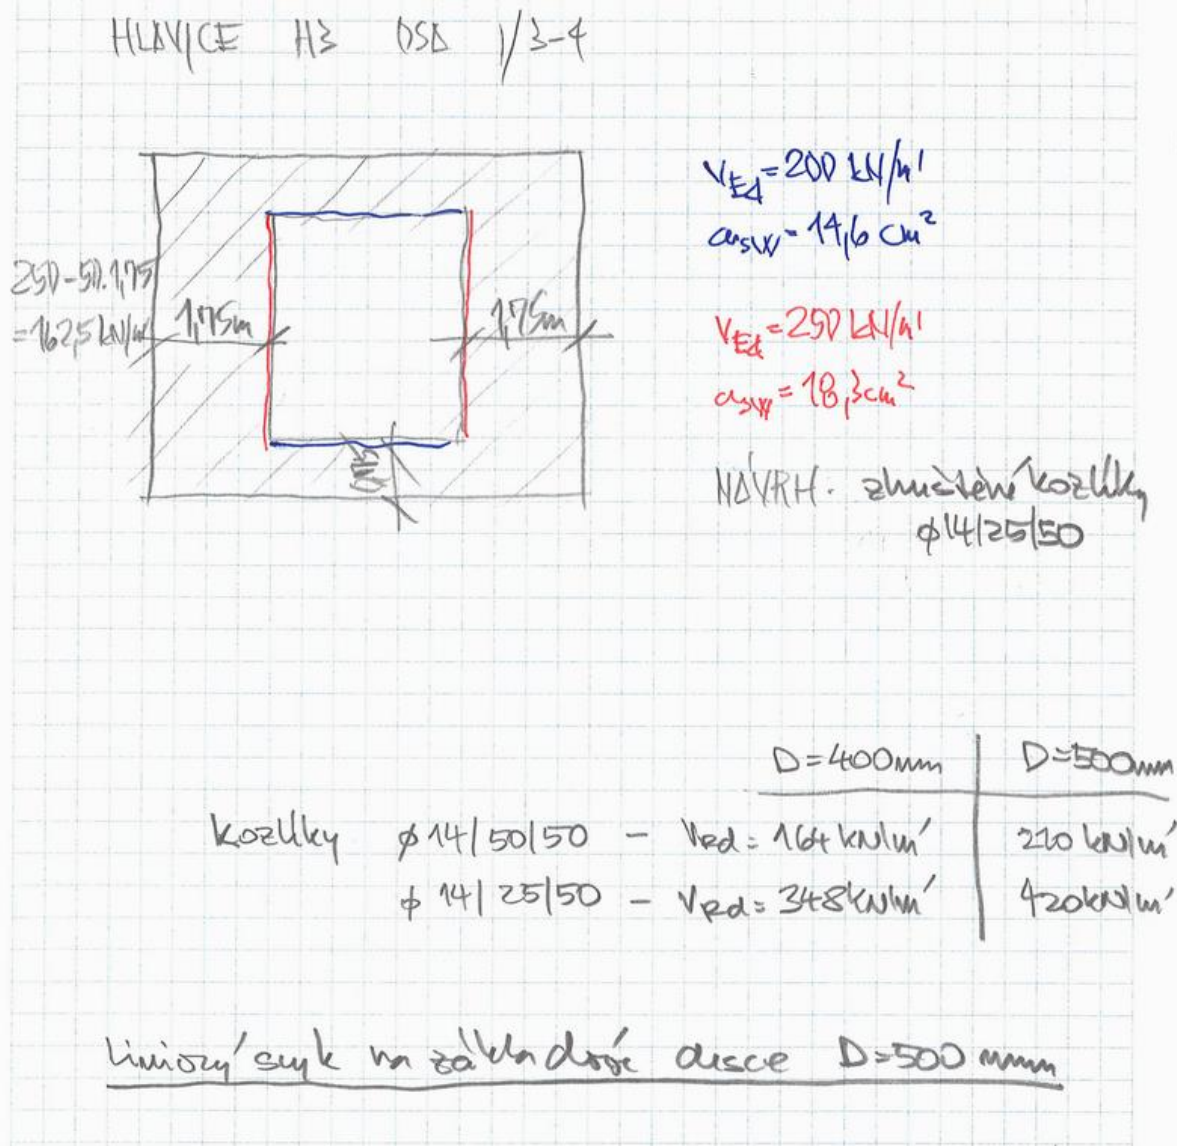 HLAVICE H3 OSA 1/3-4
V_Ed = 200 kN/m'
a_sw = 14,6 cm²
250-50.1,75
= 162,5 kN/m'
1,75m 1,75m
V_Ed = 250 kN/m'
a_sw = 18,3 cm²
NÁVRH. zhuštěné kozlíky
φ14/25/50
D=400mm D=500mm
kozlíky φ14/50/50 - V_Rd = 164 kN/m' 210 kN/m'
φ14/25/50 - V_Rd = 348 kN/m' 420 kN/m'
Liniový smyk na základové desce D=500 mm